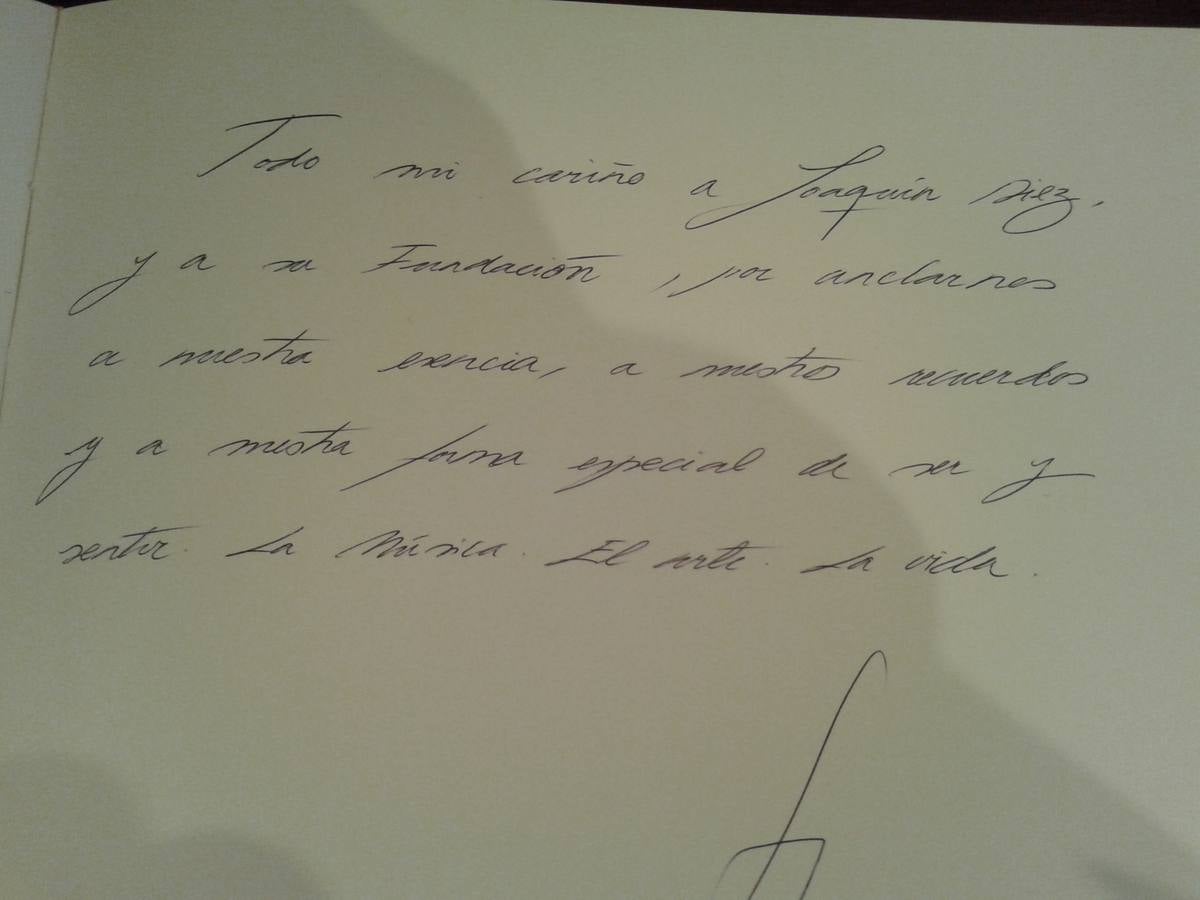 Todo mi cariño a Joaquín Díez,
y a su Fundación, por anclarnos
a nuestra esencia, a nuestros recuerdos
y a nuestra forma especial de ser y
sentir. La Música. El arte. La vida.